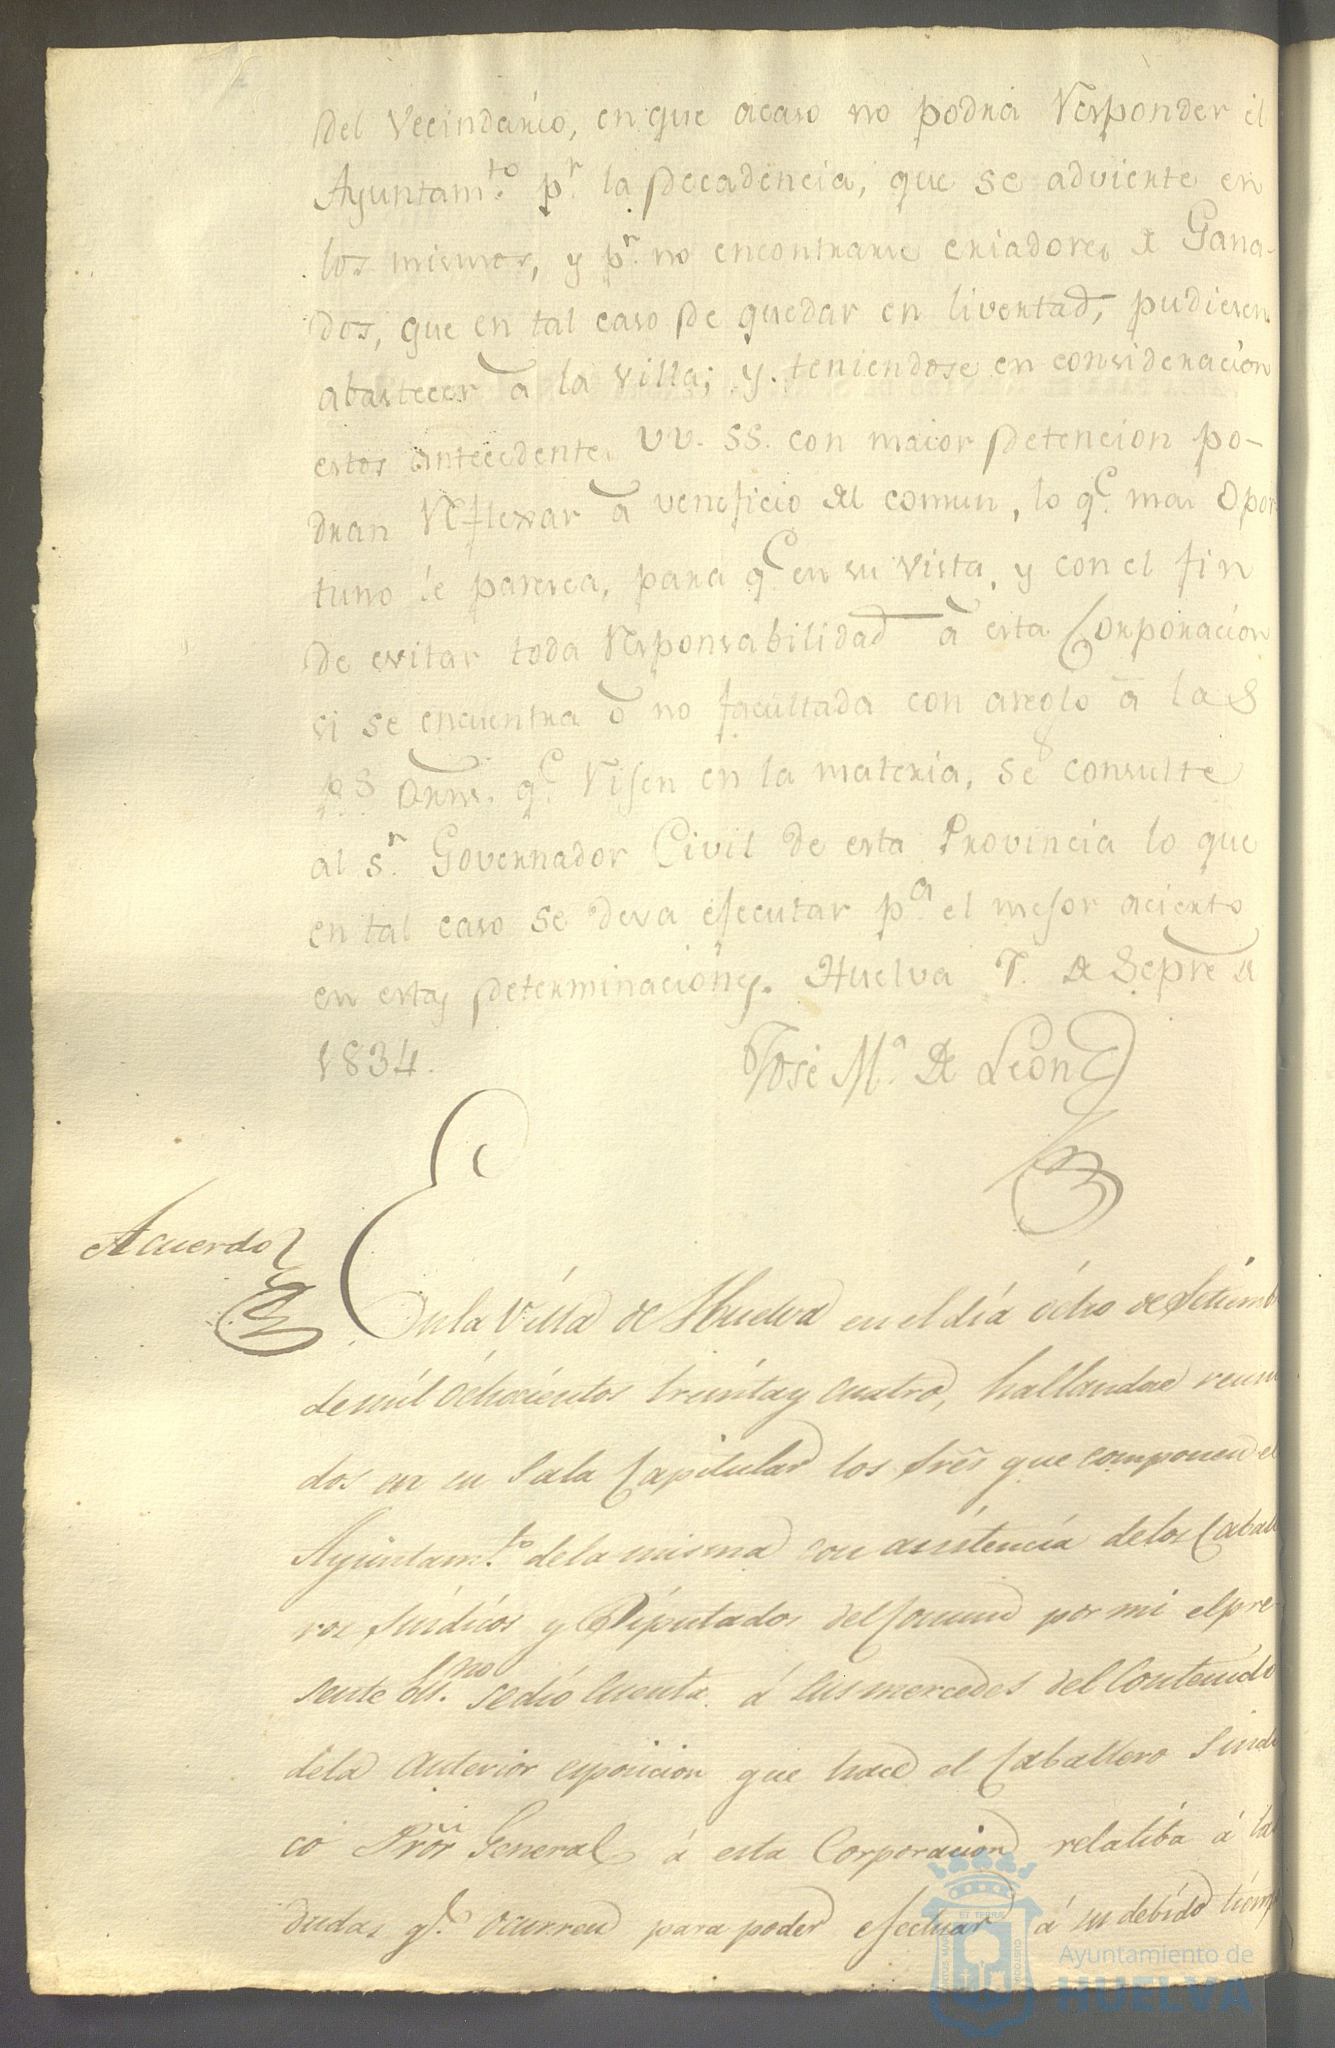 del Vecindario, en que acaso no podra Responder el
Ayuntam.to p.r la decadencia, que se advierte en
los mismos, y p.r no encontrarse criadores de Gana-
dos, que en tal caso de quedar en livertad, pudiesen
abastecer à la villa; y teniendose en consideracion
estos antecedentes VV. SS. con maior detencion po-
dran Reflexar à veneficio del comun, lo q.e mas opor
tuno le paresca, para q.e en su vista, y con el fin
de evitar toda Responsabilidad à esta Corporacion
si se encuentra ò no facultada con areglo à las
Orns. q.e Rijen en la materia, se consulte
al S.r Governador Civil de esta Provincia lo que
en tal caso se deva ejecutar p.a el mejor acierto
en estas determinaciones. Huelva 7. de Sepre de
1834.
José M.a de Leon
Acuerdo
En la Villa de Huelva en el día ócho de Setiemb
de mil óchocientos treinta y cuatro, hallandose reuni
dos en su Sala Capitular los Sres que componen el
Ayuntam.to de la misma con asistencia de los Caball
ros Sindicos y Diputados del Comun por mi el pre-
sente Es.no se dió cuenta á sus mercedes del contenido
de la anterior exposicion que hace el Caballero Sindi
co Pror General á esta Corporacion relatiba á las
dudas q.e ocurren para poder efectuar á su debido tiemp
Ayuntamiento de
HUELVA